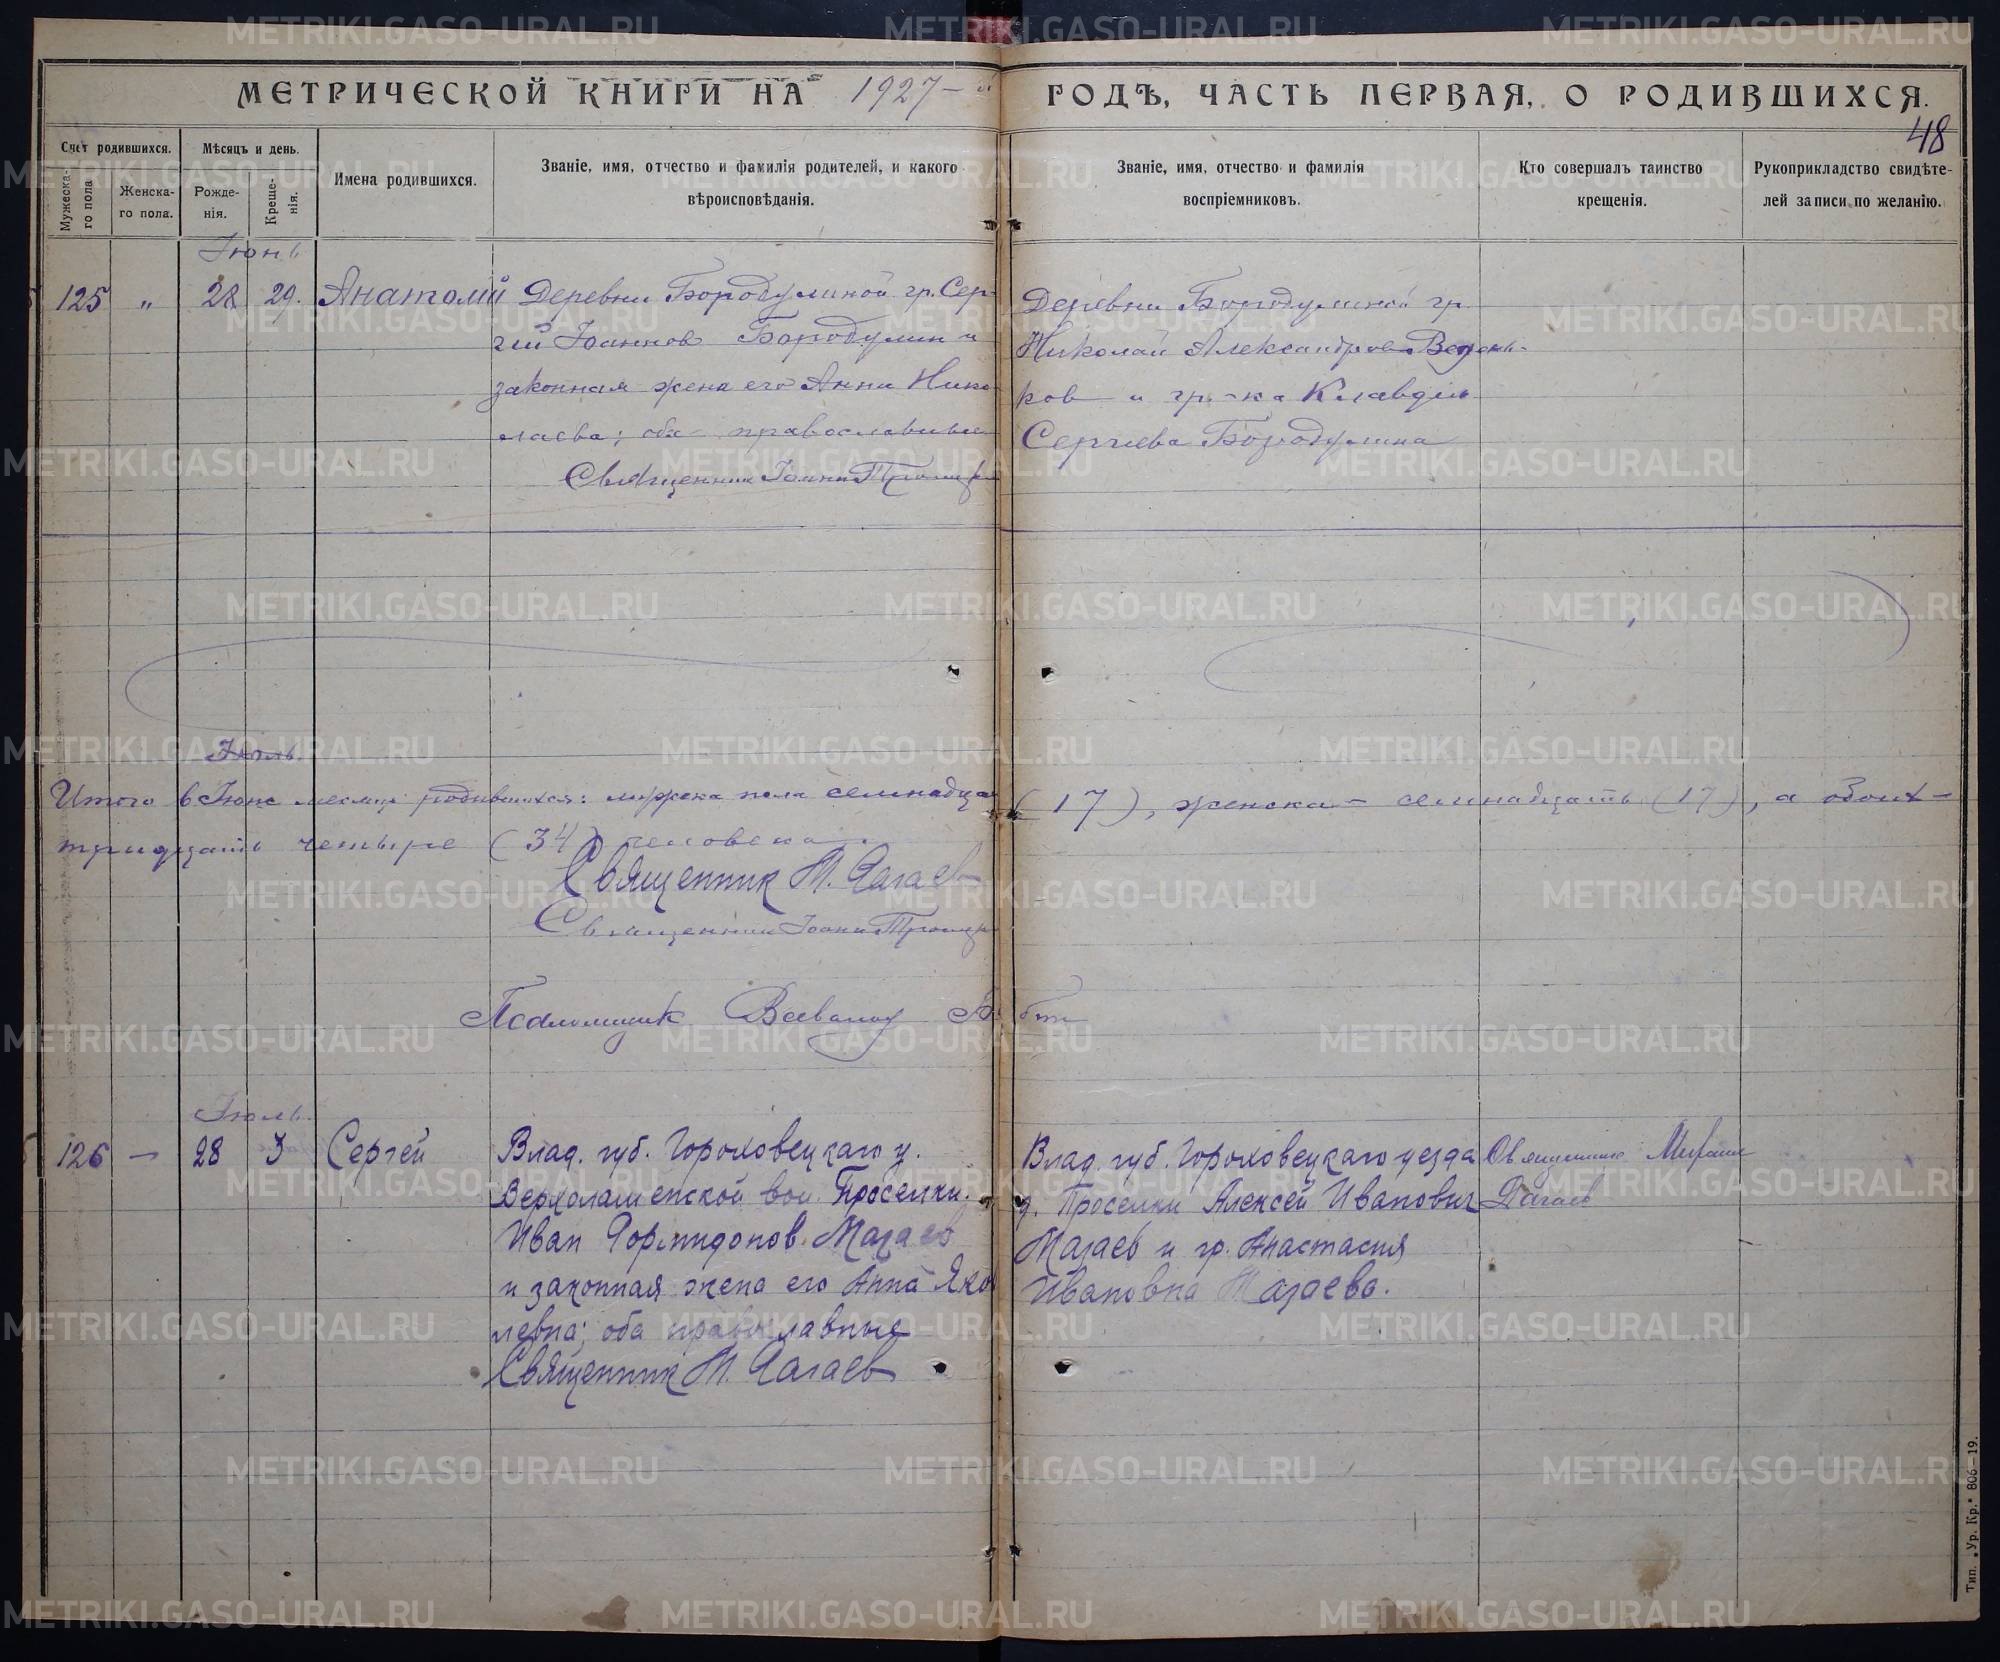 МЕТРИЧЕСКОЙ КНИГИ НА 1927 ГОДЪ, ЧАСТЬ ПЕРВАЯ, О РОДИВШИХСЯ.
48
Счет родившихся.
Мѣсяцъ и день.
Мужеска-
го пола
Женска-
го пола.
Рожде-
нія.
Креще-
нія.
Имена родившихся.
Званіе, имя, отчество и фамилія родителей, и какого
вѣроисповѣданія.
Званіе, имя, отчество и фамилія
воспріемниковъ.
Кто совершалъ таинство
крещенія.
Рукоприкладство свидѣте-
лей записи по желанію.
Іюнь
125 „ 28 29. Анатолий
Деревни Бородулиной гр. Сер-
гий Иоаннов Бородулин и
законная жена его Анна Нико
лаева; оба православные
Священник Иоанн
Деревни Бородулиной гр.
Николай Александров
ков и гр-ка Клавдия
Сергиева Бородулина
Іюль.
Итого в Іюне месяце родившихся: мужска пола семнадца (17), женска – семнадцать (17), а обоих –
тридцать четыре (34) человека.
Священник М.
Священник Иоанн
Псаломщик Всеволод
Іюль.
126 — 28 3 Сергей
Влад. губ. Гороховецкаго у.
вол. Проселки.
Иван Мазаев
и законная жена его Анна Яко
левна; оба православные
Священник М.
Влад. губ. Гороховецкаго уезда
д. Проселки Алексей Иванович
Мазаев и гр. Анастасия
Ивановна Мазаева.
Священник
Тип. „Ур. Кр." 806—19.
METRIKI.GASO-URAL.RU